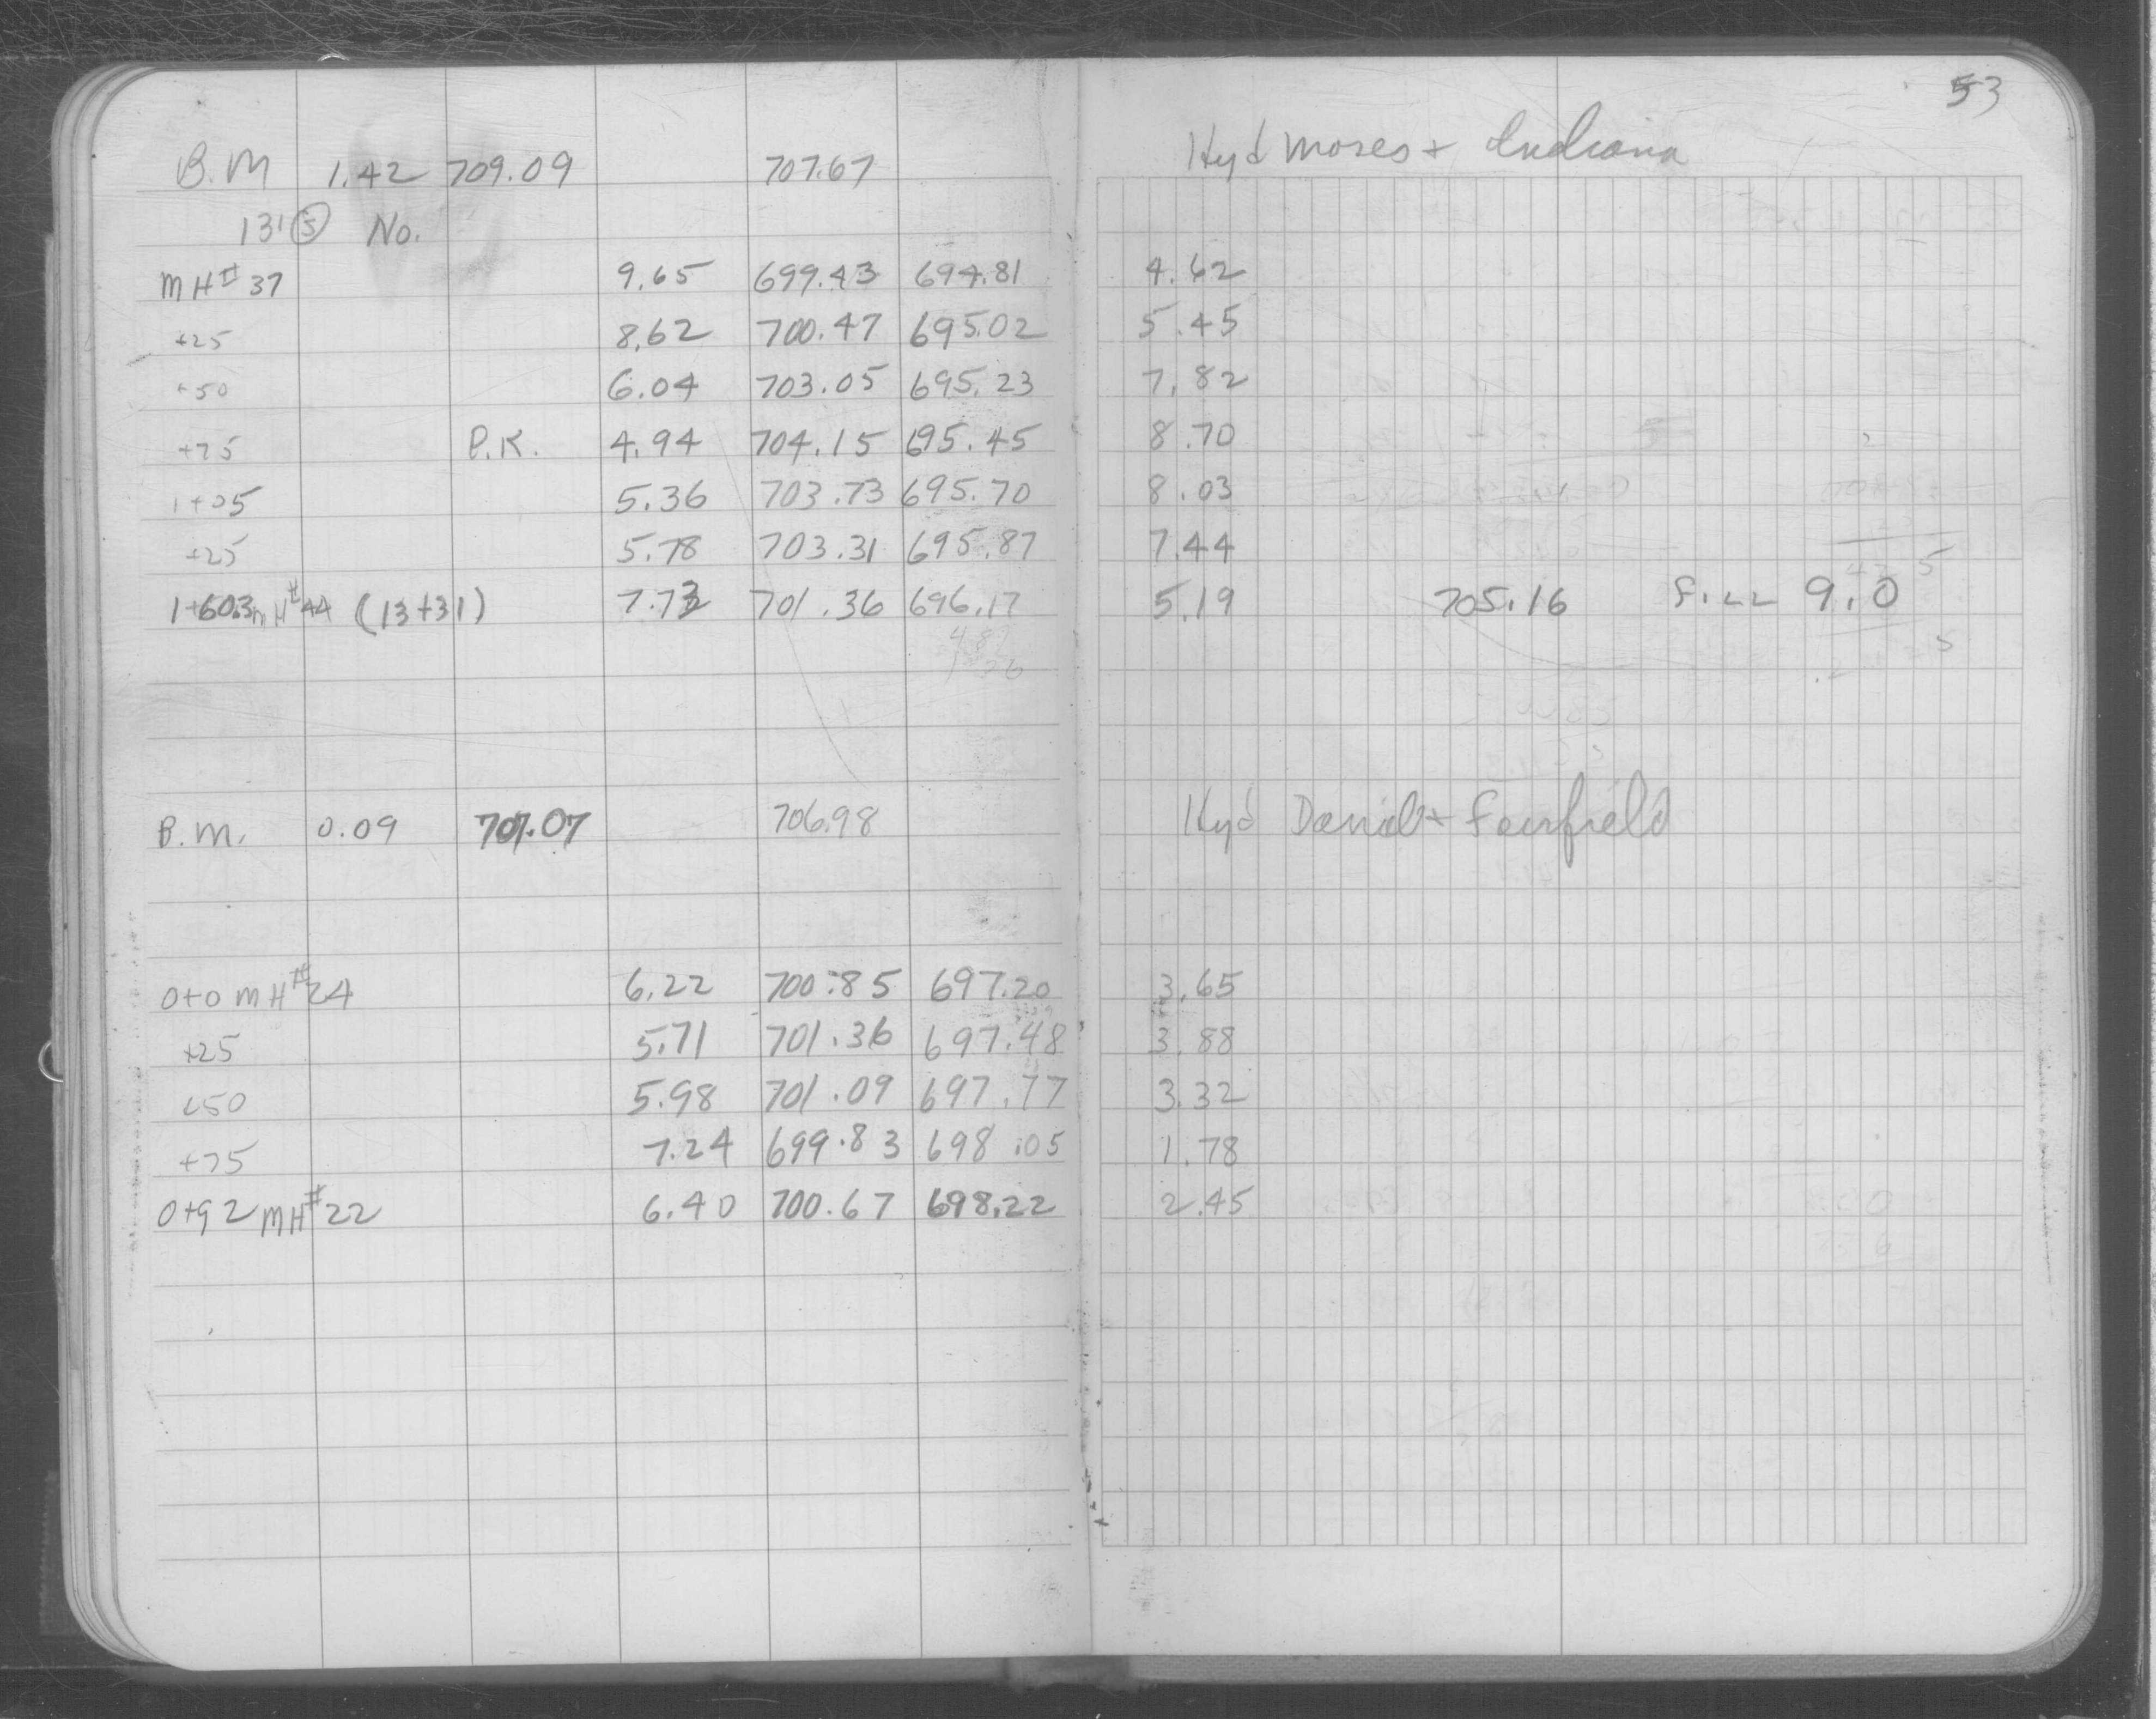 53
B.M 1.42 709.09 707.67 Hyd Moses + Indiana
131 (5) No.
MH# 37 9.65 699.43 694.81 4.62
+25 8.62 700.47 695.02 5.45
+50 6.04 703.05 695.23 7.82
+75 P.K. 4.94 704.15 695.45 8.70
1+05 5.36 703.73 695.70 8.03
+25 5.78 703.31 695.87 7.44
1+60.3 MH#44 (13+31) 7.73 701.36 696.17 5.19 705.16 Fill 9.0
B.M. 0.09 707.07 706.98 Hyd Daniel + Fairfield
0+0 MH#24 6.22 700.85 697.20 3.65
+25 5.71 701.36 697.48 3.88
+50 5.98 701.09 697.77 3.32
+75 7.24 699.83 698.05 1.78
0+92 MH#22 6.40 700.67 698.22 2.45